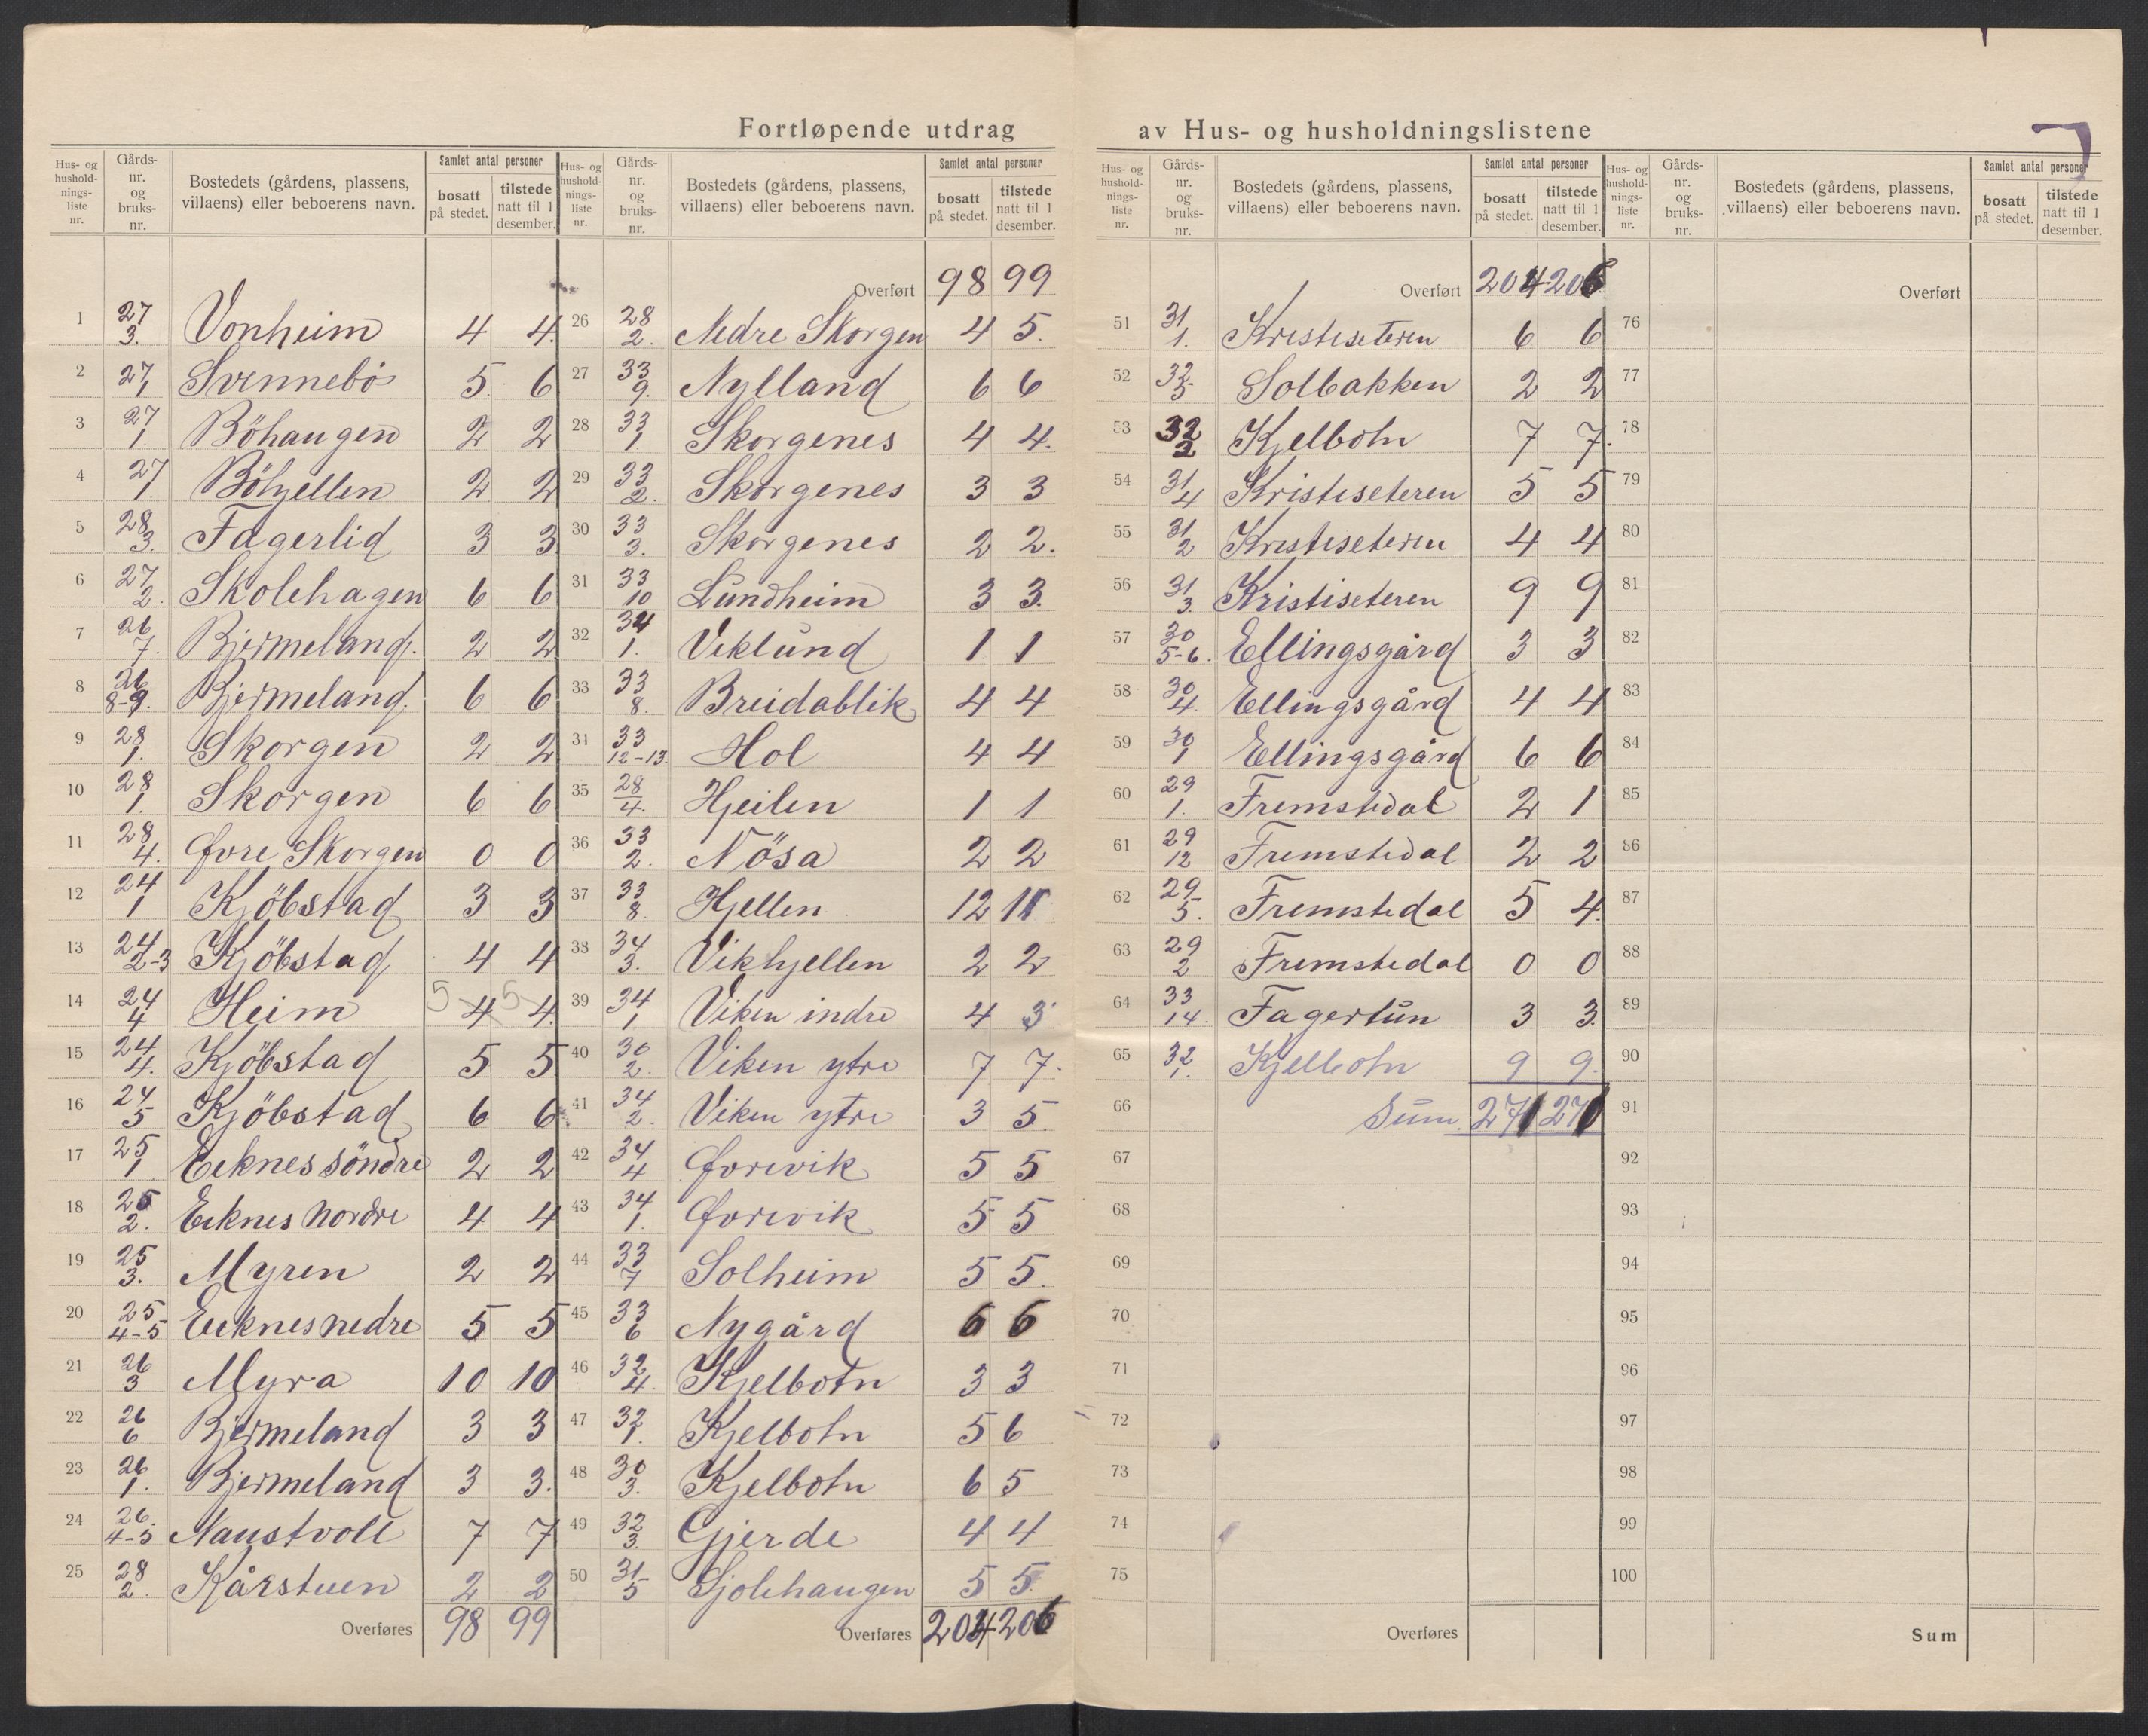 Fortløpende utdrag av Hus- og husholdningslistene
Hus- og hushold-nings-liste nr. Gårds-nr. og bruks-nr. Bostedets (gårdens, plassens, villaens) eller beboerens navn. Samlet antal personer bosatt på stedet. tilstede natt til 1 desember.
1 27/3. Vonheim 4 4.
2 27/1 Svennebö 5 6
3 27/1. Böhaugen 2 2
4 27/1. Böhjellen 2 2
5 28/3. Fagerlid 3 3
6 27/2. Skolehagen 6 6
7 26/7. Bjermeland. 2 2
8 26/8-9. Bjermeland. 6 6
9 28/1. Skorgen 2 2
10 28/1. Skorgen 6 6
11 28/4. Øvre Skorgen 0 0
12 24/1 Kjöbstad 3 3
13 24/2-3 Kjöbstad 4 4
14 24/4 Heim 5 4 5 4.
15 24/4. Kjöbstad 5 5
16 24/5 Kjöbstad 6 6
17 25/1 Eeknes söndre 2 2
18 25/2. Eeknes nordre 4 4
19 25/3. Myren 2 2
20 25/4-5 Eeknes nedre 5 5
21 26/3 Myra 10 10
22 26/6 Bjermeland 3 3
23 26/1. Bjermeland 3 3.
24 26./4-5 Naustvoll 7 7
25 28/2. Kårstuen 2 2
Overføres 98 99
Hus- og hushold-nings-liste nr. Gårds-nr. og bruks-nr. Bostedets (gårdens, plassens, villaens) eller beboerens navn. Samlet antal personer bosatt på stedet. tilstede natt til 1 desember.
Overført 98 99
26 28/2. Nedre Skorgen 4 5.
27 33/9. Nylland 6 6
28 33/1. Skorgenes 4 4.
29 33/2. Skorgenes 3 3
30 33/3. Skorgenes 2 2.
31 33/10 Lundheim 3 3.
32 34/1. Viklund 1 1
33 33/8. Breidablik 4 4
34 33/12-13. Hol 4 4
35 28/4. Hjeilen 1 1
36 33/2. Nösa 2 2
37 33/8. Hjellen 12 11
38 34/3. Vikhjellen 2 2
39 34/1 Viken indre 4 3
40 30/2. Viken ytre 7 7.
41 34/2. Viken ytre 3 5.
42 34/4 Ørevik 5 5
43 34/1. Ørevik 5 5
44 33/7 Solheim 5 5.
45 33/6 Nygård 6 6
46 32/4. Kjelbotn 3 3
47 32/1. Kjelbotn 5 6
48 30/3. Kjelbotn 6 5
49 32/3. Gjerde 4 4
50 31/5 Sjolehaugen 5 5.
Overføres 204 206
Hus- og hushold-nings-liste nr. Gårds-nr. og bruks-nr. Bostedets (gårdens, plassens, villaens) eller beboerens navn. Samlet antal personer bosatt på stedet. tilstede natt til 1 desember.
Overført 204 206
51 31/1. Kristiseteren 6 6
52 32/5. Solbakken 2 2
53 32/2 Kjelbotn 7 7.
54 31/4 Kristiseteren 5 5
55 31/2 Kristiseteren 4 4
56 31/3. Kristiseteren 9 9
57 30/5-6. Ellingsgård 3 3
58 30/4. Ellingsgård 4 4
59 30/1 Ellingsgård 6 6
60 29/1. Fremstedal 2 1
61 29/12 Fremstedal 2 2
62 29/5. Fremstedal 5 4.
63 29/2 Fremstedal 0 0
64 33/14. Fagertun 3 3.
65 32/1. Kjelbotn 9 9.
66 Sum. 271 271
67
68
69
70
71
72
73
74
75
Overføres
Hus- og hushold-nings-liste nr. Gårds-nr. og bruks-nr. Bostedets (gårdens, plassens, villaens) eller beboerens navn. Samlet antal personer bosatt på stedet. tilstede natt til 1 desember.
Overført
76
77
78
79
80
81
82
83
84
85
86
87
88
89
90
91
92
93
94
95
96
97
98
99
100
Sum